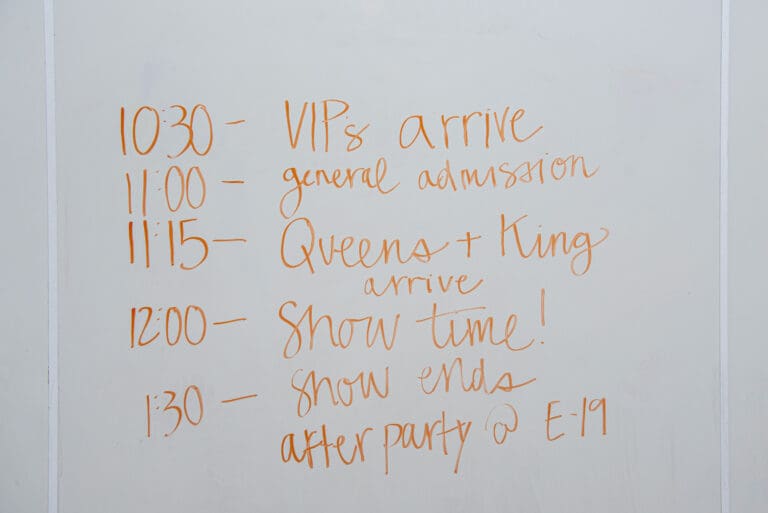 10:30 - VIP's arrive
11:00 - general admission
11:15 - Queens + King
arrive
12:00 - Show time!
1:30 - Show ends
after party @ E-19